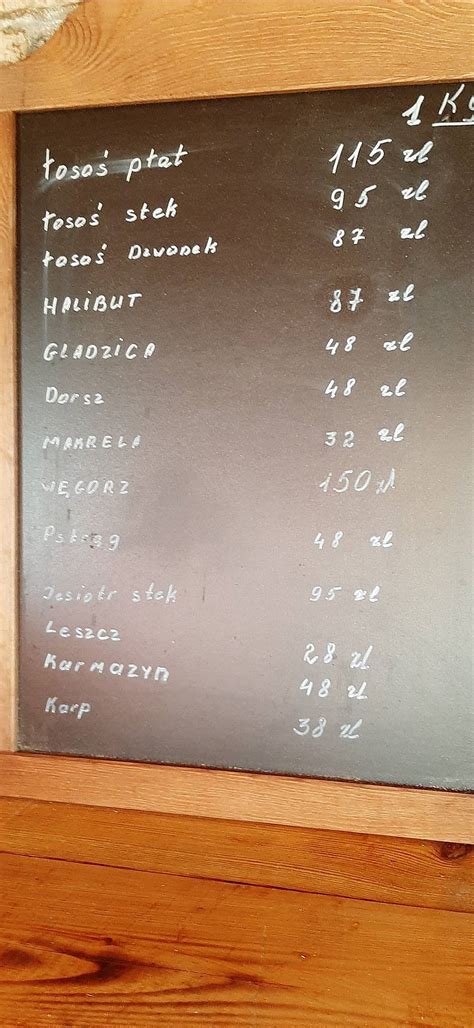 1 Kg
łosoś płat 115 zł
łosoś stek 95 zł
łosoś Dzwonek 87 zł
HALIBUT 87 zł
GLADZICA 48 zł
Dorsz 48 zł
MAKRELA 32 zł
WĘGORZ 150 zł
Pstrąg 48 zł
Jesiotr stek 95 zł
Leszcz 28 zł
Karmazyn 48 zł
Karp 38 zł